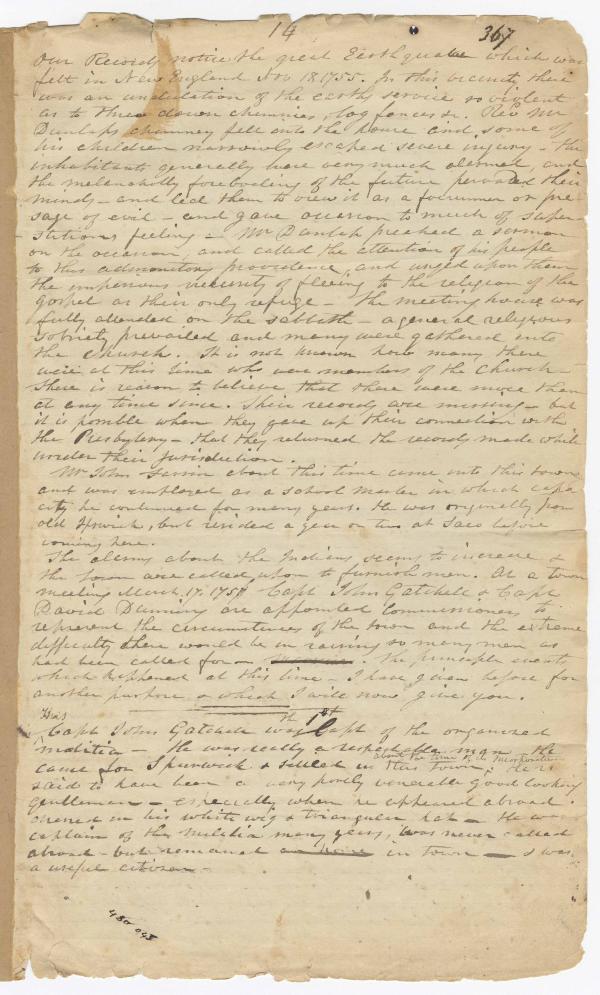 14
367
Our Records notice the great Earthquake which was
felt in New England Nov 18. 1755. In this vicinity their
was an undulation of the earths service so violent
as to throw down chimnies, log fences &c. Rev Mr
Dunlaps chimney fell onto the house and some of
his children narrowly escaped severe injury - the
inhabitants generally were very much alarmed, and
the melancholly foreboding of the future pervaded their
minds - and led them to view it as a forerunner or pre
sage of evil - and gave occasion to much of super
stitious feeling - Mr Dunlap preached a sermon
on the occasion, and called the attention of his people
to this admonitory providence, and urged upon them
the imperious necessity of fleeing to the religion of the
gospel as their only refuge - the meeting house was
fully attended on the sabbath - a general religious
sobriety prevailed and many were gathered into
the church. It is not known how many there
were at this time who were members of the church -
there is reason to believe that there were more than
at any time since. Their records are missing - but
it is possible when they gave up their connection with
the Presbytery - that they returned the records made while
under their jurisdiction.
Mr John about this time came into this town
and was employed as a school master in which capa
city he continued for many years. He was originally from
old Ipswich, but resided a year or two at Saco before
coming here.
The alarms about the Indians seems to increase &
the town are called upon to furnish men. At a town
meeting March 17. Capt John Gatchell & Capt
David Dunning are appointed Commissioners to
represent the circumstances of the town and the extreme
difficulty there would be in raising so many men as
had been called for. The principle events
which happened at this time - I have given before for
another purpose & which I will now give you.
This
Capt John Gatchell was the 1st Capt of the organized
militia - He was really a respectable man - He
about the time of its Incorporation
came from Spurwink & settled in this town; He is
said to have been a very portly venerable good looking
gentleman - especially when he appeared abroad
dressed in his white wig & triangular hat - He was
captain of the militia many years, was never called
abroad - but remained in town - & was
a useful citizen -